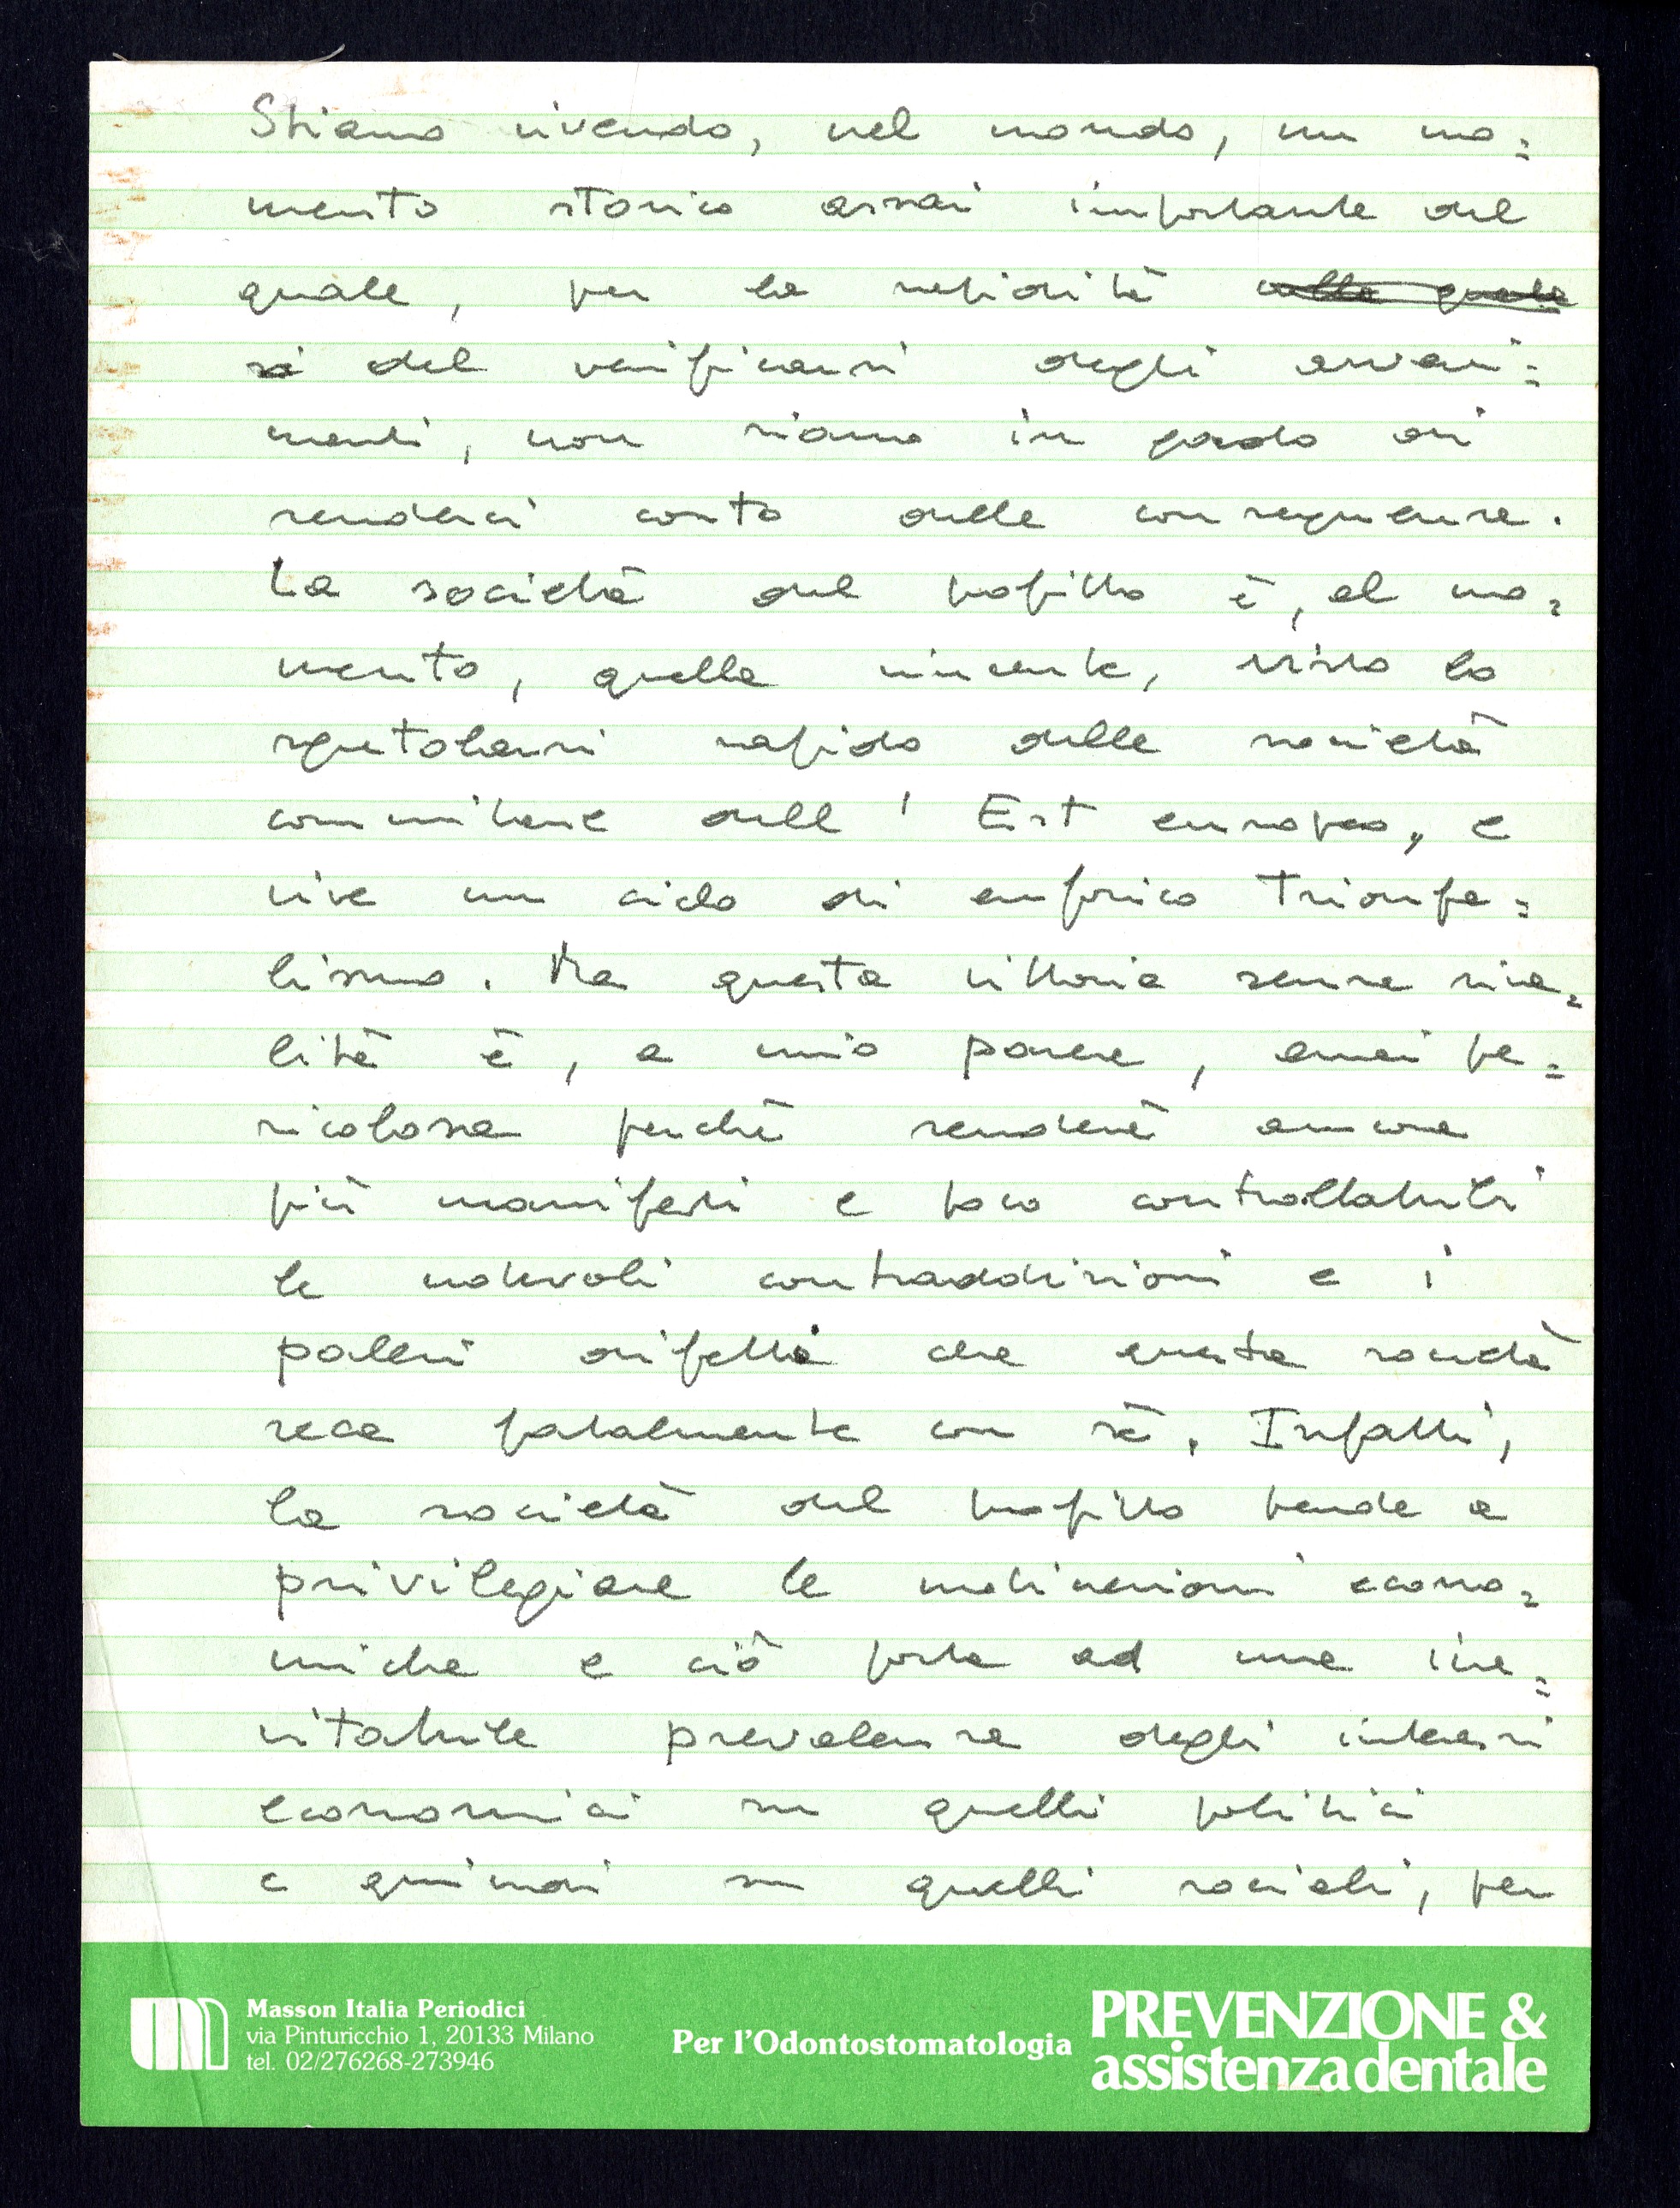 Stiamo vivendo, nel mondo, un mo=
mento storico assai importante del
quale, per la rapidità colla quale
si del verificarsi degli avveni=
menti, non siamo in grado di
renderci conto delle conseguenze.
La società del profitto è, al mo=
mento, quella vincente, visto lo
sgretolarsi rapido delle società
comunitarie dell'Est europeo, e
vive un ciclo di euforico trionfa=
lismo. Ma questa vittoria senza riva=
lità è, a mio parere, assai pe=
ricolosa perchè renderà ancora
più manifesti e poco controllabili
le notevoli contraddizioni e i
palesi difetti che questa società
reca fatalmente con sè. Infatti,
la società del profitto tende a
privilegiare le motivazioni econo=
miche e ciò porta ad una ine=
vitabile prevalenza degli interessi
economici su quelli politici
e quindi su quelli sociali, per
Masson Italia Periodici
via Pinturicchio 1, 20133 Milano
tel. 02/276268-273946
Per l'Odontostomatologia
PREVENZIONE &
assistenza dentale